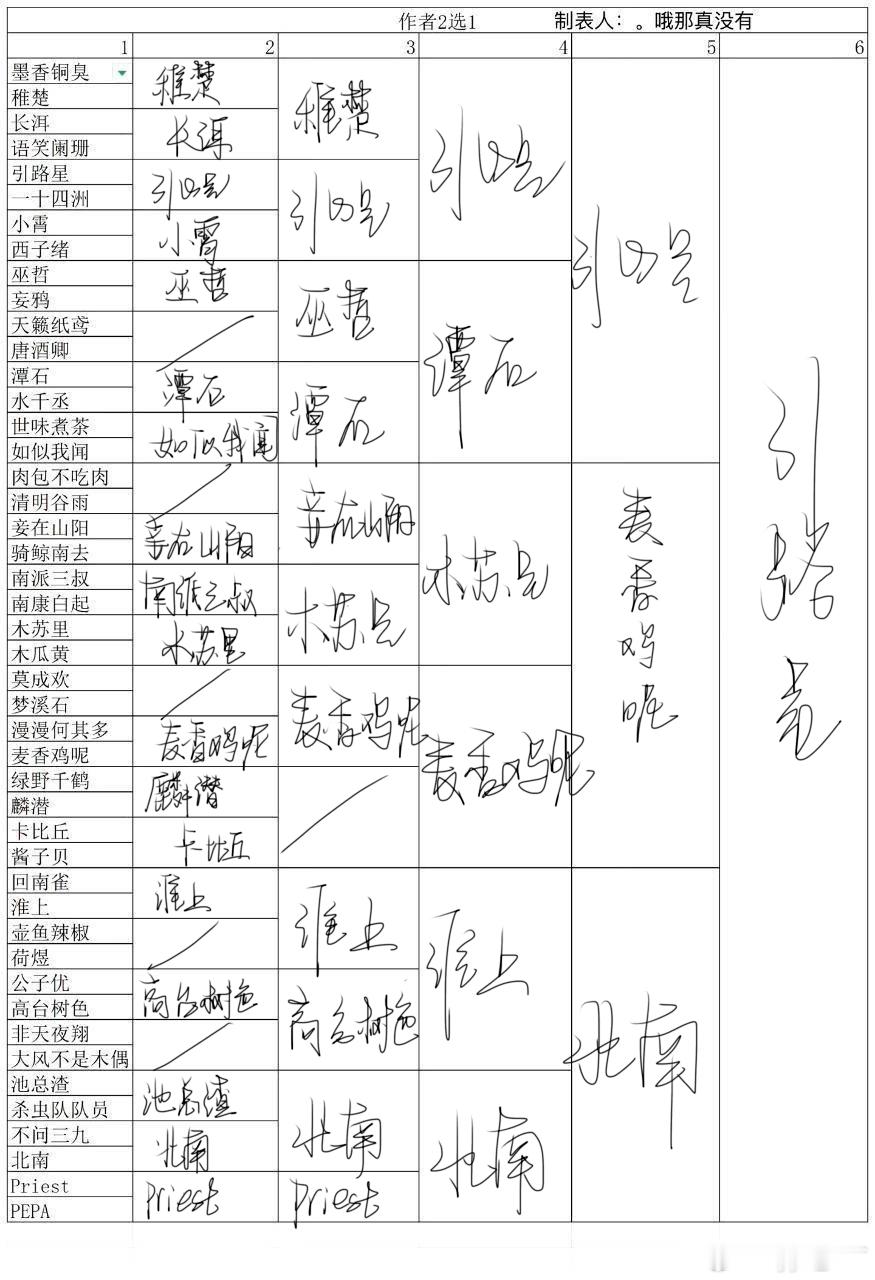 作者2选1 制表人：。哦那真没有
1 2 3 4 5 6
墨香铜臭
稚楚
长洱
语笑阑珊
引路星
一十四洲
小霄
西子绪
巫哲
妄鸦
天籁纸鸢
唐酒卿
潭石
水千丞
世味煮茶
如似我闻
肉包不吃肉
清明谷雨
妾在山阳
骑鲸南去
南派三叔
南康白起
木苏里
木瓜黄
莫成欢
梦溪石
漫漫何其多
麦香鸡呢
绿野千鹤
麟潜
卡比丘
酱子贝
回南雀
淮上
壶鱼辣椒
荷煜
公子优
高台树色
非天夜翔
大风不是木偶
池总渣
杀虫队队员
不问三九
北南
Priest
PEPA
稚楚
长洱
引路星
小霄
巫哲
潭石
如似我闻
妾在山阳
南派三叔
木苏里
麦香鸡呢
麟潜
卡比丘
淮上
高台树色
池总渣
北南
Priest
稚楚
引路星
巫哲
潭石
妾在山阳
木苏里
麦香鸡呢
淮上
高台树色
北南
Priest
引路星
潭石
木苏里
麦香鸡呢
淮上
北南
引路星
麦
香
鸡
呢
北南
引
路
星